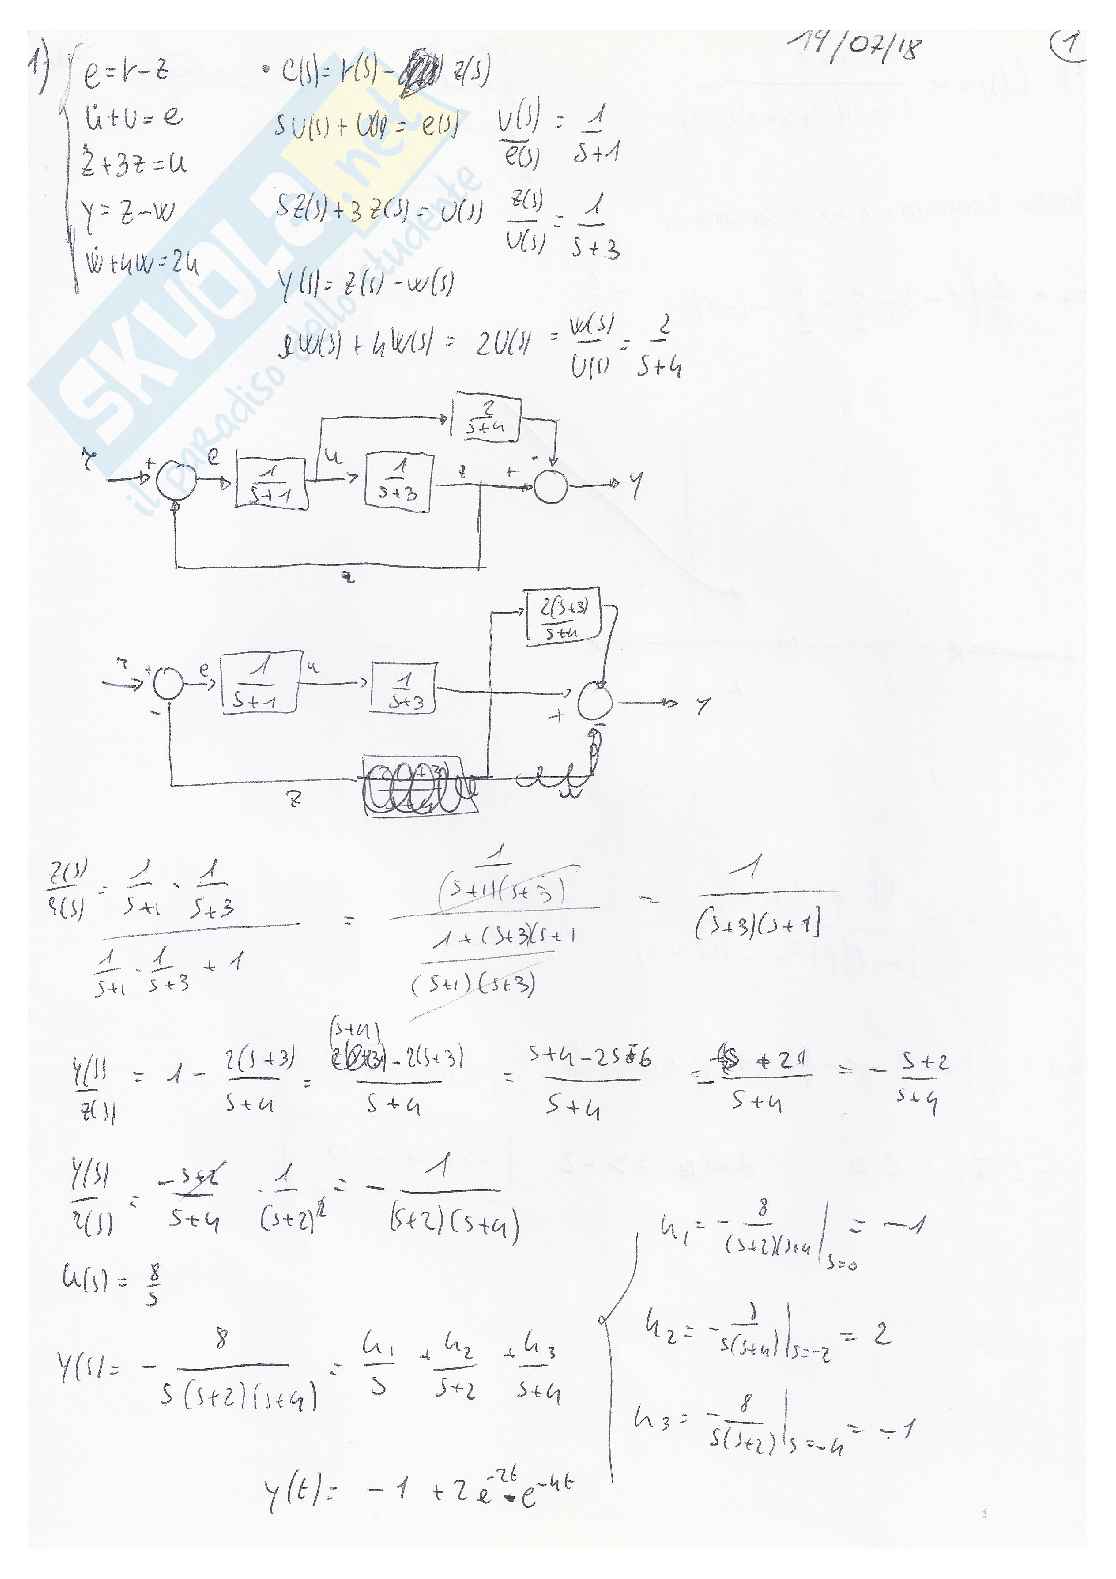 19/07/18 1
1) e = r - z • e(s) = r(s) - z(s)
u̇ + u = e s u(s) + u(s) = e(s) u(s)/e(s) = 1/(s+1)
ż + 3z = u s z(s) + 3 z(s) = u(s) z(s)/u(s) = 1/(s+3)
y = z - w y(s) = z(s) - w(s)
ẇ + 4w = 2u s w(s) + 4 w(s) = 2 u(s) = w(s)/u(s) = 2/(s+4)
SKUOLA.net
il paradiso dello studente
2/(s+4)
r + e 1/(s+1) u 1/(s+3) z + - y
z
2(s+3)/(s+4)
r + e 1/(s+1) u 1/(s+3) + y
- z -
z(s)/r(s) = (1/(s+1) · 1/(s+3)) / (1/(s+1) · 1/(s+3) + 1) = (1/((s+1)(s+3))) / ((1+(s+3)(s+1)/((s+1)(s+3))) = 1/((s+3)(s+1))
y(s)/z(s) = 1 - 2(s+3)/(s+4) = ((s+4) - 2(s+3))/(s+4) = (s+4-2s-6)/(s+4) = - (s+2)/(s+4) = - (s+2)/(s+4)
y(s)/r(s) = (-s+2)/(s+4) · 1/(s+2)² = - 1/((s+2)(s+4))
u(s) = 8/s
y(s) = - 8/(s(s+2)(s+4)) = k₁/s + k₂/(s+2) + k₃/(s+4)
k₁ = - 8/((s+2)(s+4)) |s=0 = -1
k₂ = - 8/(s(s+4)) |s=-2 = 2
k₃ = - 8/(s(s+2)) |s=-4 = -1
y(t) = -1 + 2e^-2t - e^-4t